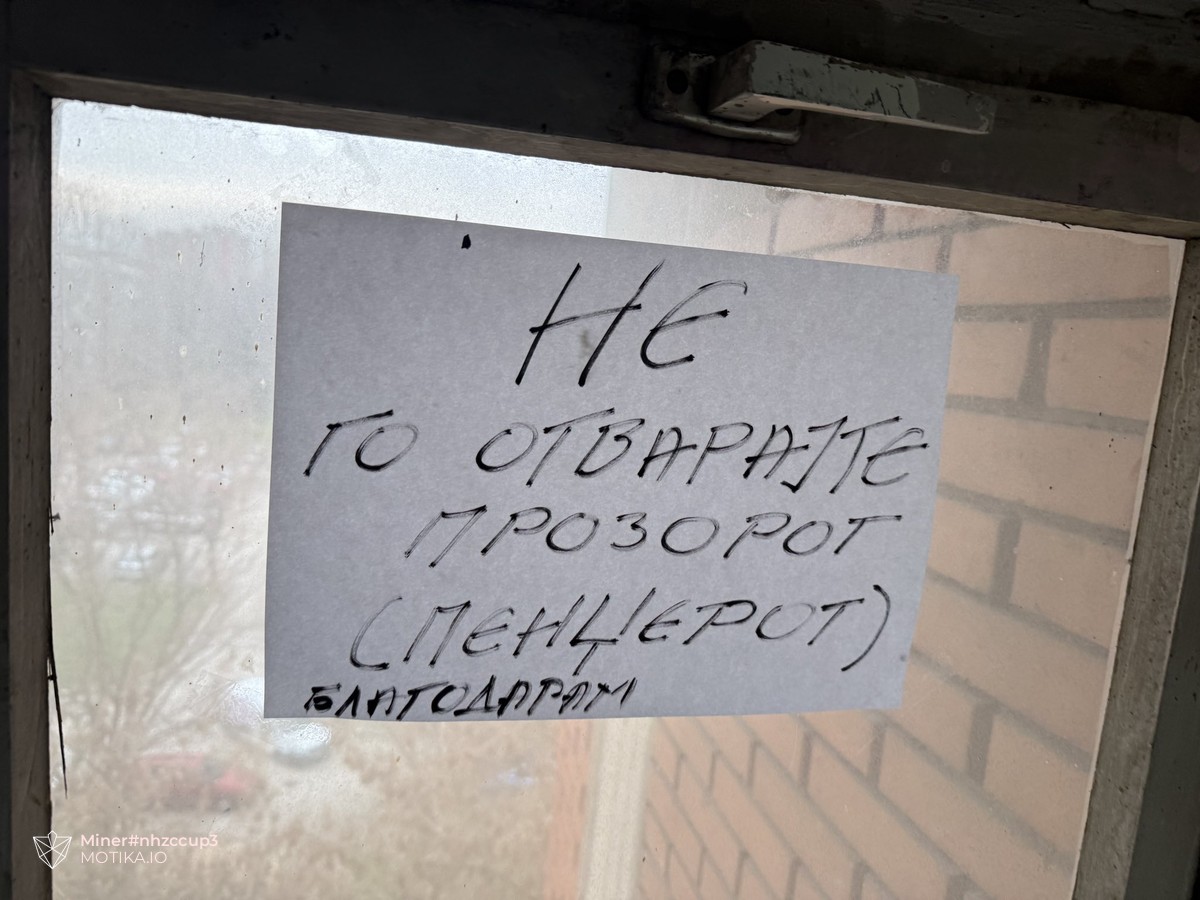 НЕ
ГО ОТВАРАЈТЕ
ПРОЗОРОТ
(ПЕНЏЕРОТ)
БЛАГОДАРАМ
Miner#nhzccup3
MOTIKA.IO